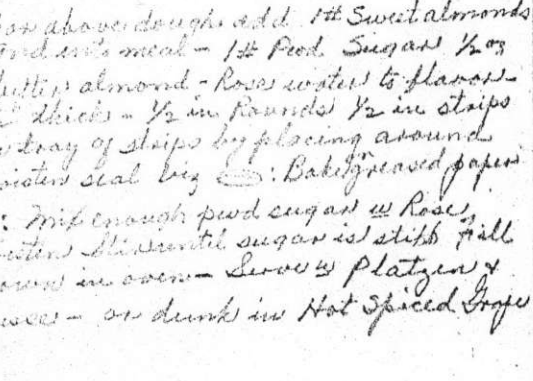 above dough add 1# Sweet almonds
meal - 1# Pwd Sugar 1/2 oz
bitter almond - Rose water to flavor -
thick - 1/2 in Rounds 1/2 in strips
tray of strips by placing around
seal viz : Bake in greased paper
: Mix enough pwd sugar w Rose
until sugar is stiff Fill
in oven - Serve w Platzen &
- or dunk in Hot Spiced Grape